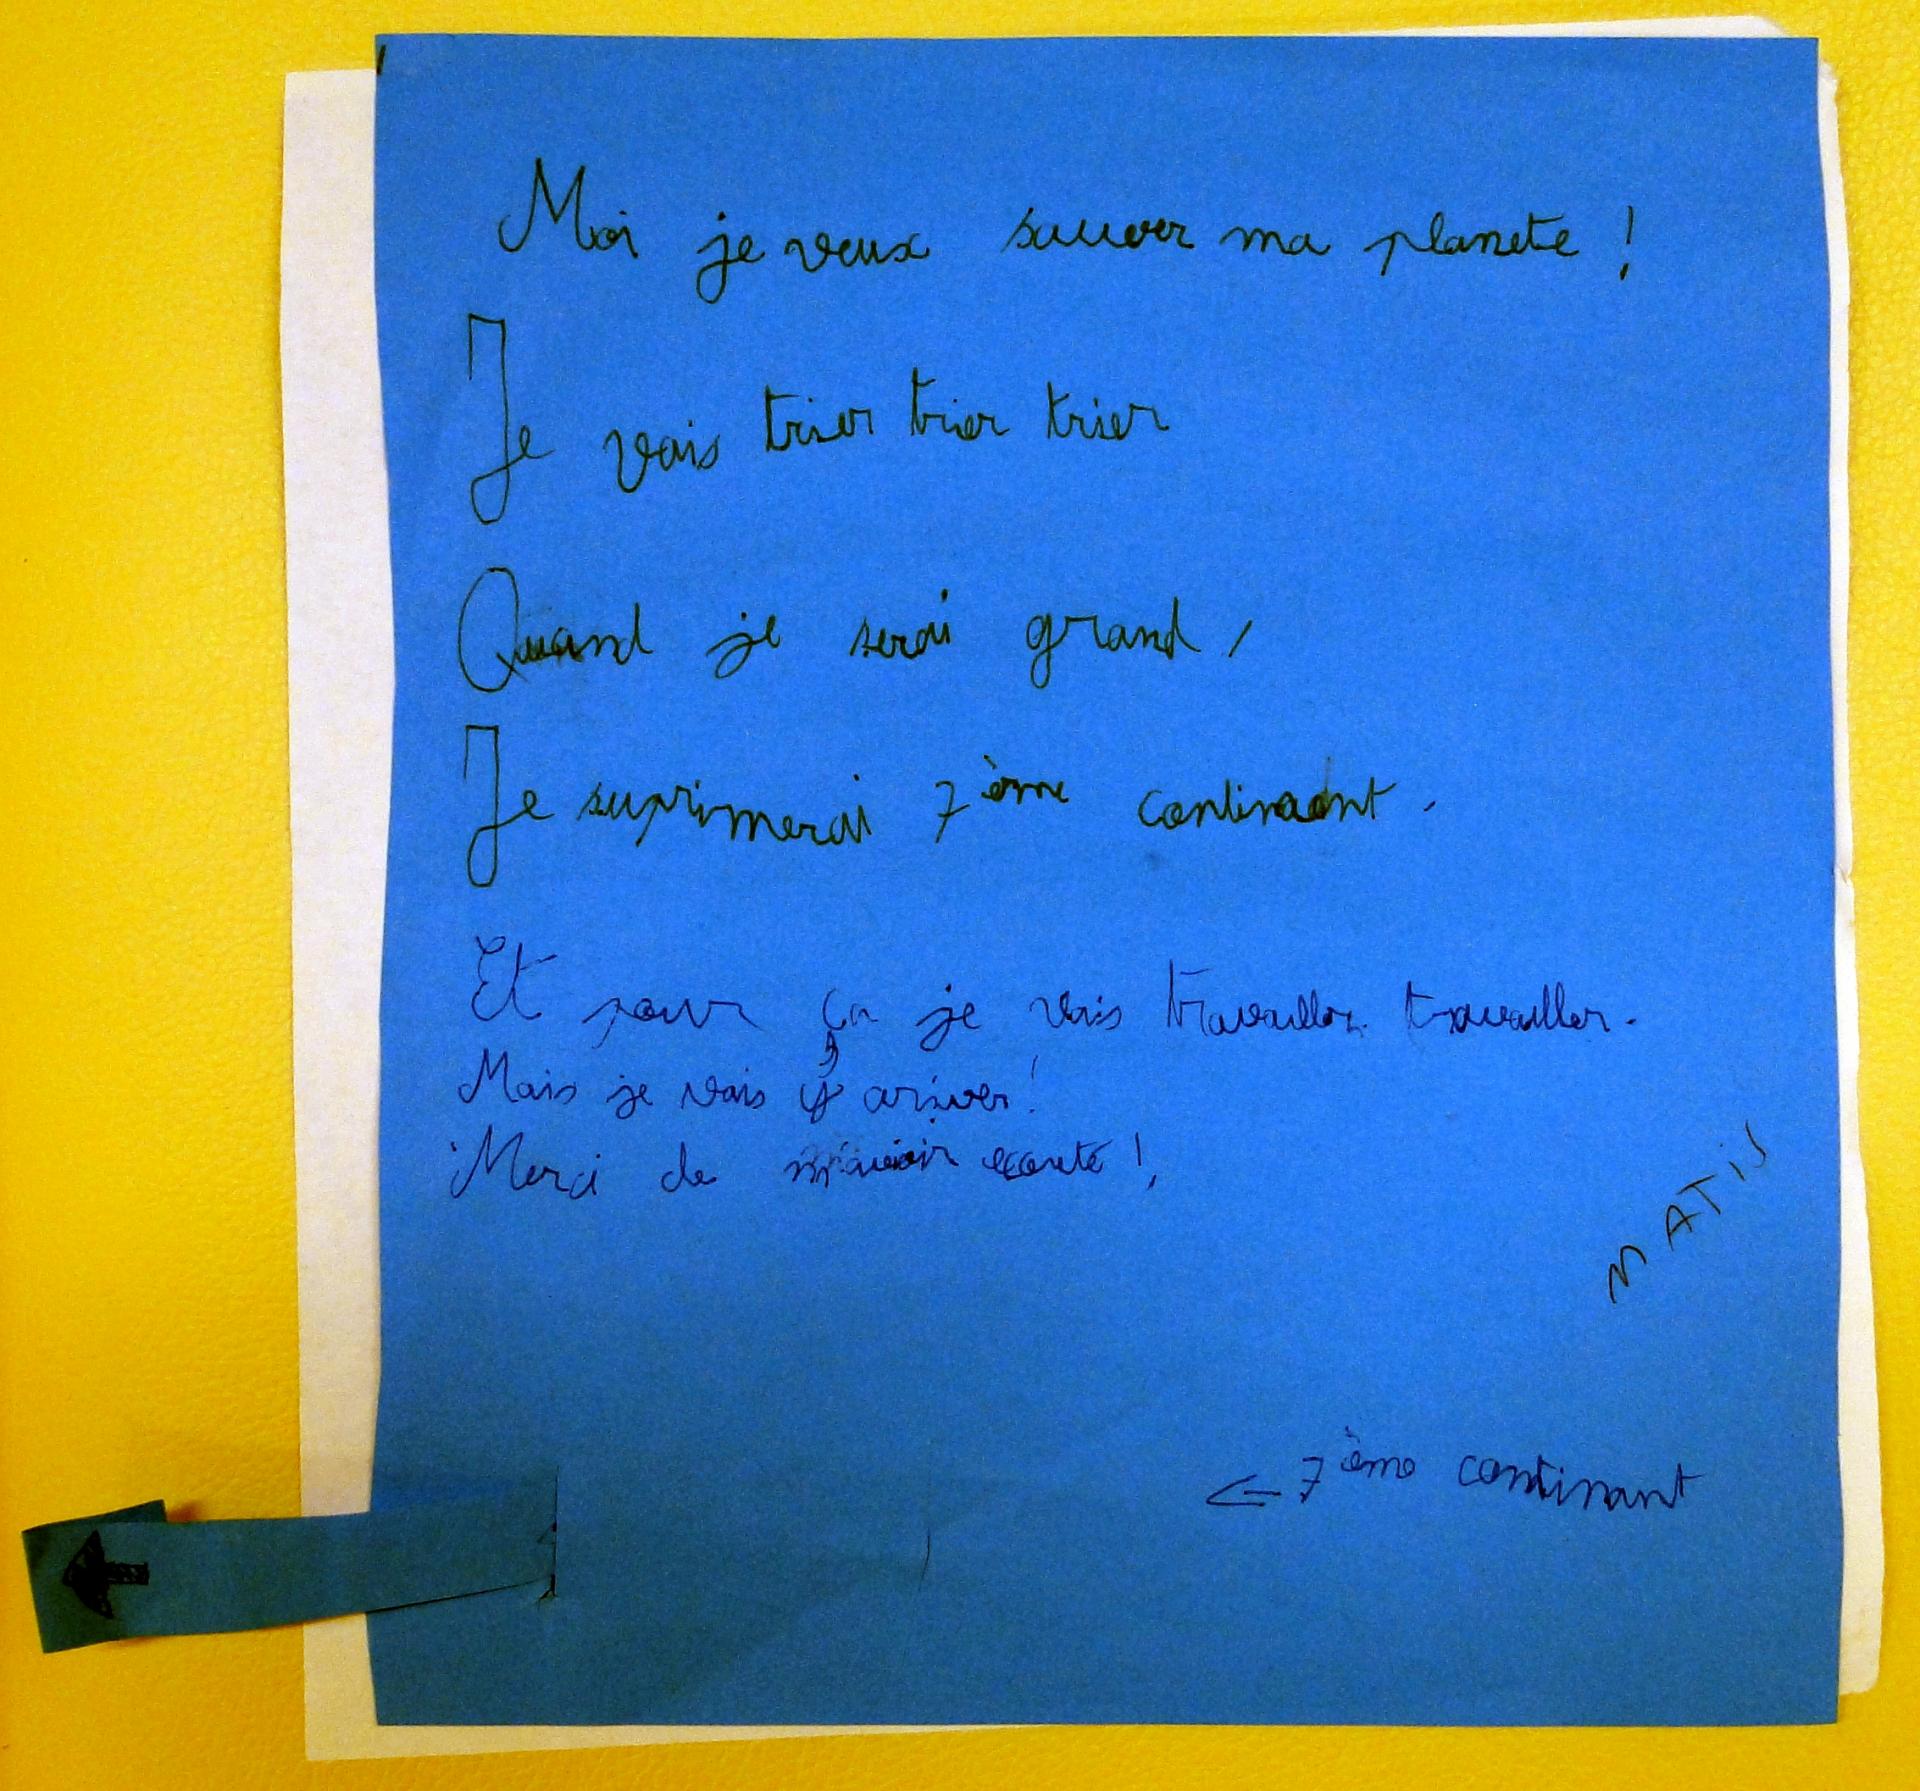 Moi je veux sauver ma planete !
Je vais trier trier trier
Quand je serai grand,
Je suprimerai 7ème continent.
Et pour ça je vais travailler travailler.
Mais je vais y ariver !
Merci de m'avoir écouté !
MATIS
← 7ème continant